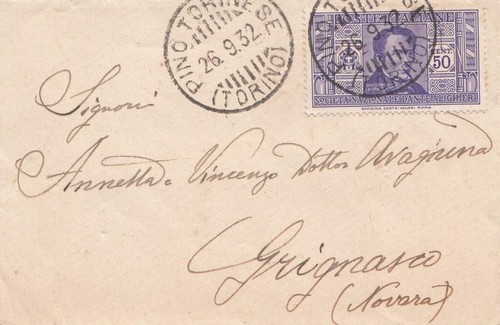 PINO TORINESE
26.9.32
(TORINO)
POSTE ITALIANE
CENT.
50
SOCIETÀ NAZIONALE DANTE ALIGHIERI
OFFICINA CARTE-VALORI ROMA
PINO T
26.9.32
Signori
Annetta e Vincenzo Dottor Avagnina
Grignasco
(Novara)